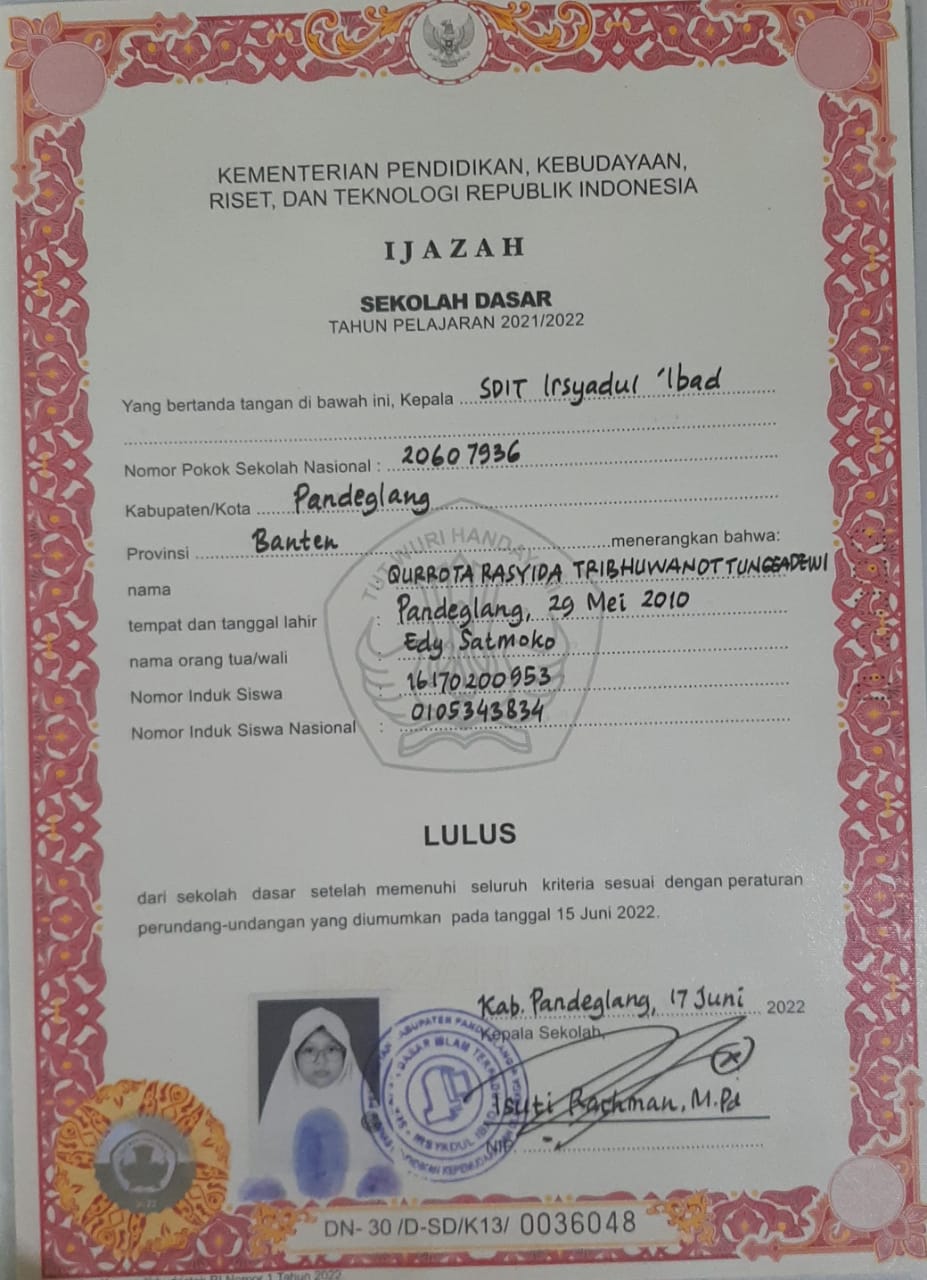 KEMENTERIAN PENDIDIKAN, KEBUDAYAAN,
RISET, DAN TEKNOLOGI REPUBLIK INDONESIA
IJAZAH
SEKOLAH DASAR
TAHUN PELAJARAN 2021/2022
Yang bertanda tangan di bawah ini, Kepala SDIT Irsyadul 'Ibad
Nomor Pokok Sekolah Nasional : 20607936
Kabupaten/Kota Pandeglang
Provinsi Banten menerangkan bahwa:
nama QURROTA RASYIDA TRIBHUWANOTTUNGGADEWI
tempat dan tanggal lahir : Pandeglang, 29 Mei 2010
nama orang tua/wali : Edy Satmoko
Nomor Induk Siswa : 16170200953
Nomor Induk Siswa Nasional : 0105343834
TUT WURI HANDAYANI
LULUS
dari sekolah dasar setelah memenuhi seluruh kriteria sesuai dengan peraturan
perundang-undangan yang diumumkan pada tanggal 15 Juni 2022.
Kab. Pandeglang, 17 Juni 2022
Kepala Sekolah,
Isuti Rachman, M.Pd
NIP.
DASAR ISLAM TERPADU
IRSYADUL IBAD
DN- 30 /D-SD/K13/ 0036048